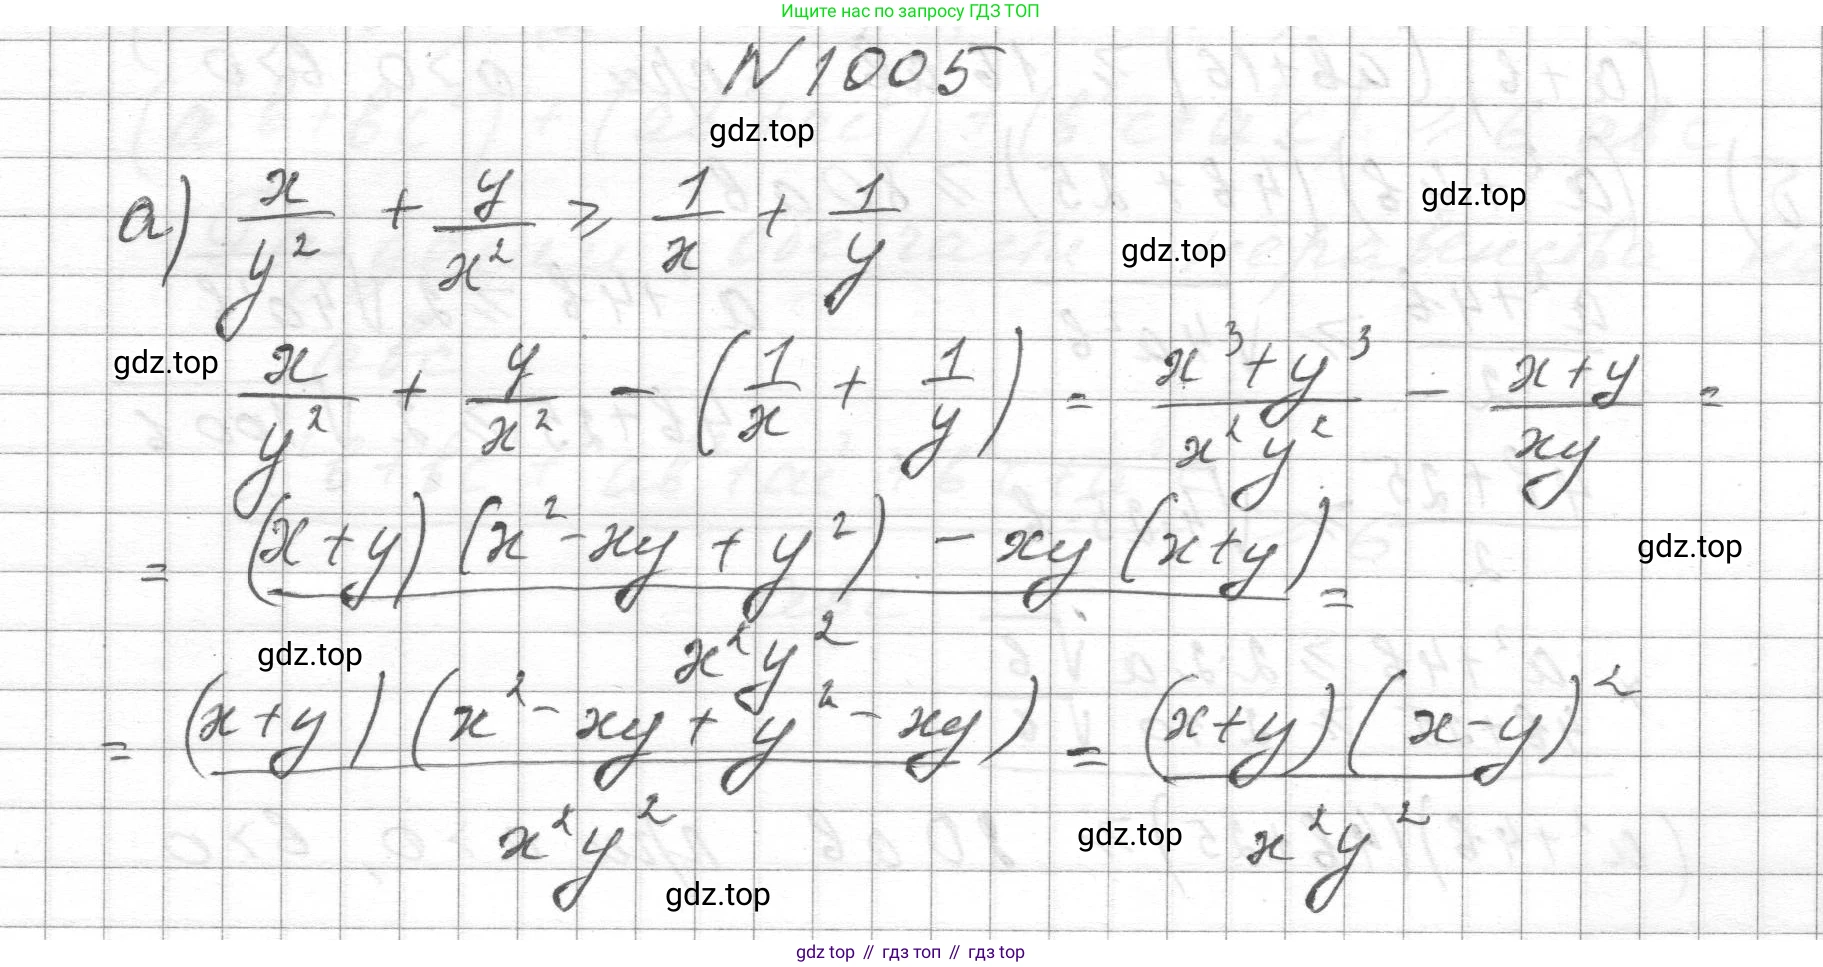 Ищите нас по запросу ГДЗ ТОП
N 1005
gdz.top
а) x/y² + y/x² ⩾ 1/x + 1/y
gdz.top
gdz.top
gdz.top
x/y² + y/x² - (1/x + 1/y) = (x³+y³)/(x²y²) - (x+y)/(xy) =
= ((x+y)(x²-xy+y²) - xy(x+y))/(x²y²) =
gdz.top
gdz.top
= ((x+y)(x²-xy+y²-xy))/(x²y²) = ((x+y)(x-y)²)/(x²y²)
gdz.top
gdz.top
gdz top // гдз топ // гдз top